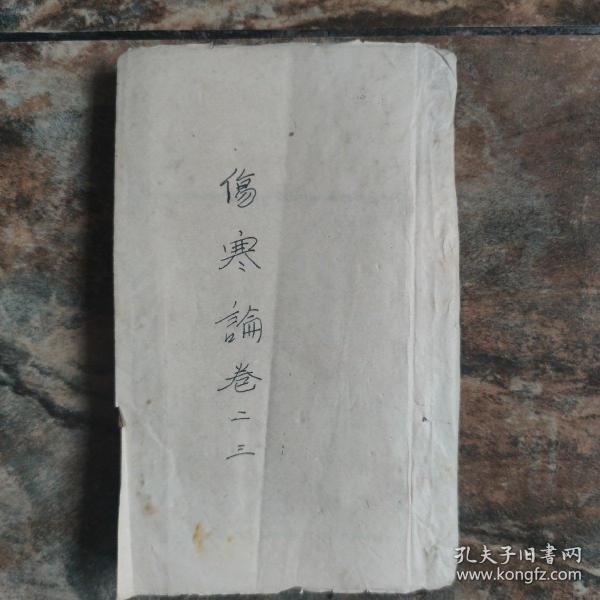 傷寒論卷二三
孔夫子旧書网
www.kongfz.com